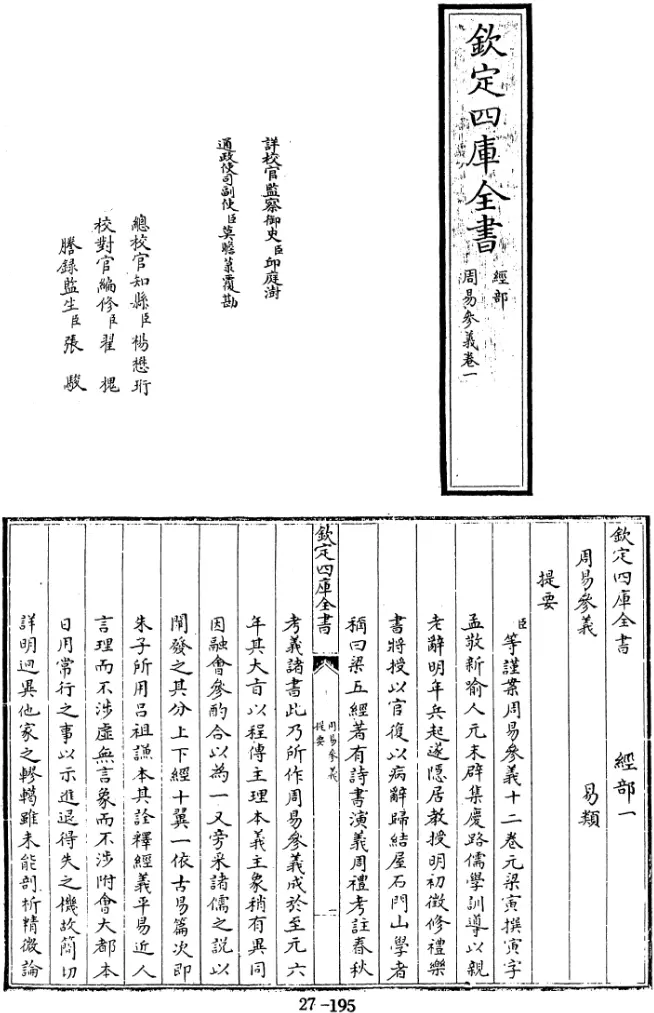 欽定四庫全書
經部
周易參義卷一
詳校官監察御史臣邱庭澍
通政使司副使臣莫瞻菉覆勘
總校官知縣臣楊懋珩
校對官編修臣翟槐
謄錄監生臣張駿
欽定四庫全書　經部一
周易參義　易類
提要
臣等謹案周易參義十二卷元梁寅撰寅字
孟敬新喻人元末辟集慶路儒學訓導以親
老辭明年兵起遂隱居教授明初徵修禮樂
書將授以官復以病辭歸結屋石門山學者
稱曰梁五經著有詩書演義周禮考註春秋
欽定四庫全書
周易參義
提要
一
考義諸書此乃所作周易參義成於至元六
年其大旨以程傳主理本義主象稍有異同
因融會參酌合以為一又旁采諸儒之說以
闡發之其分上下經十翼一依古易篇次即
朱子所用呂祖謙本其詮釋經義平易近人
言理而不涉虛無言象而不涉附會大都本
日用常行之事以示進退得失之機故簡切
詳明迥異他家之轇轕雖未能剖析精微論
27-195